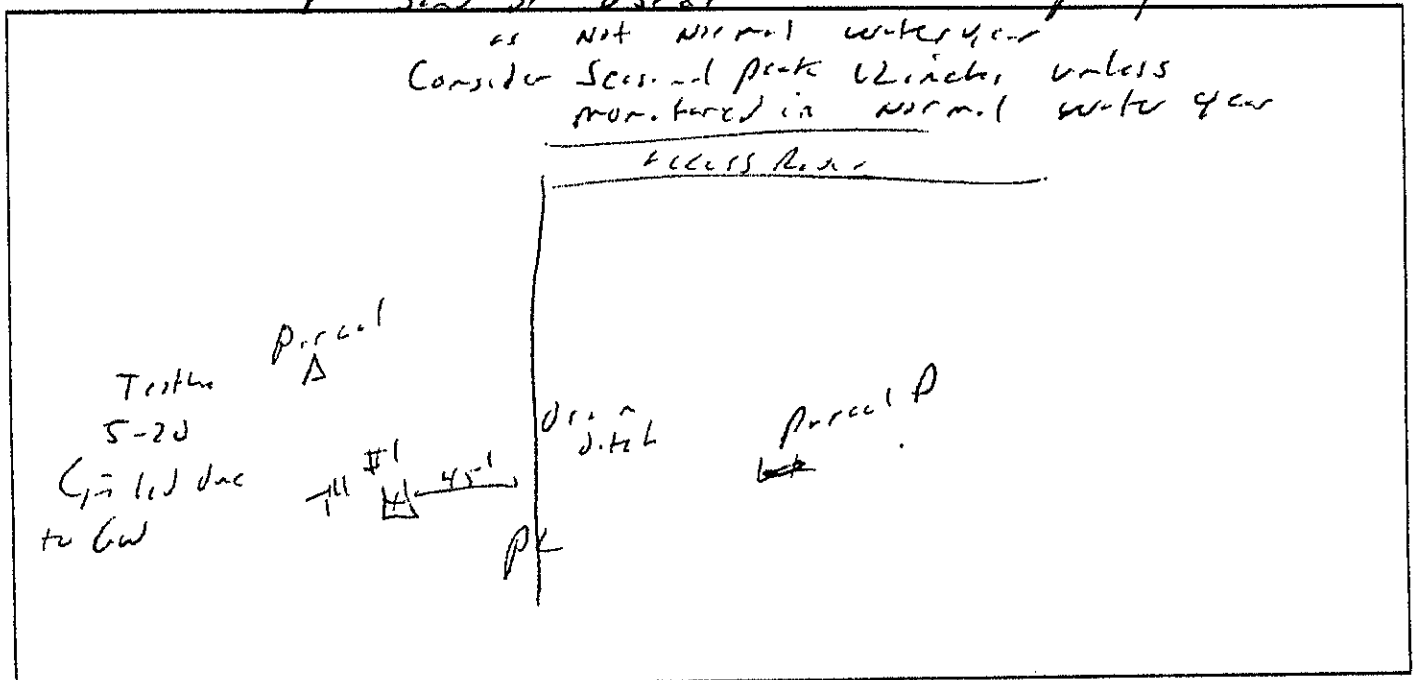 as not normal water year
Consider Seasonal peak 12 inches unless
monitored in normal water year
Access Road
Parcel
A
Testhole
5-20
led due
to GW
TH #1
45'
drain
ditch
Parcel D
PL